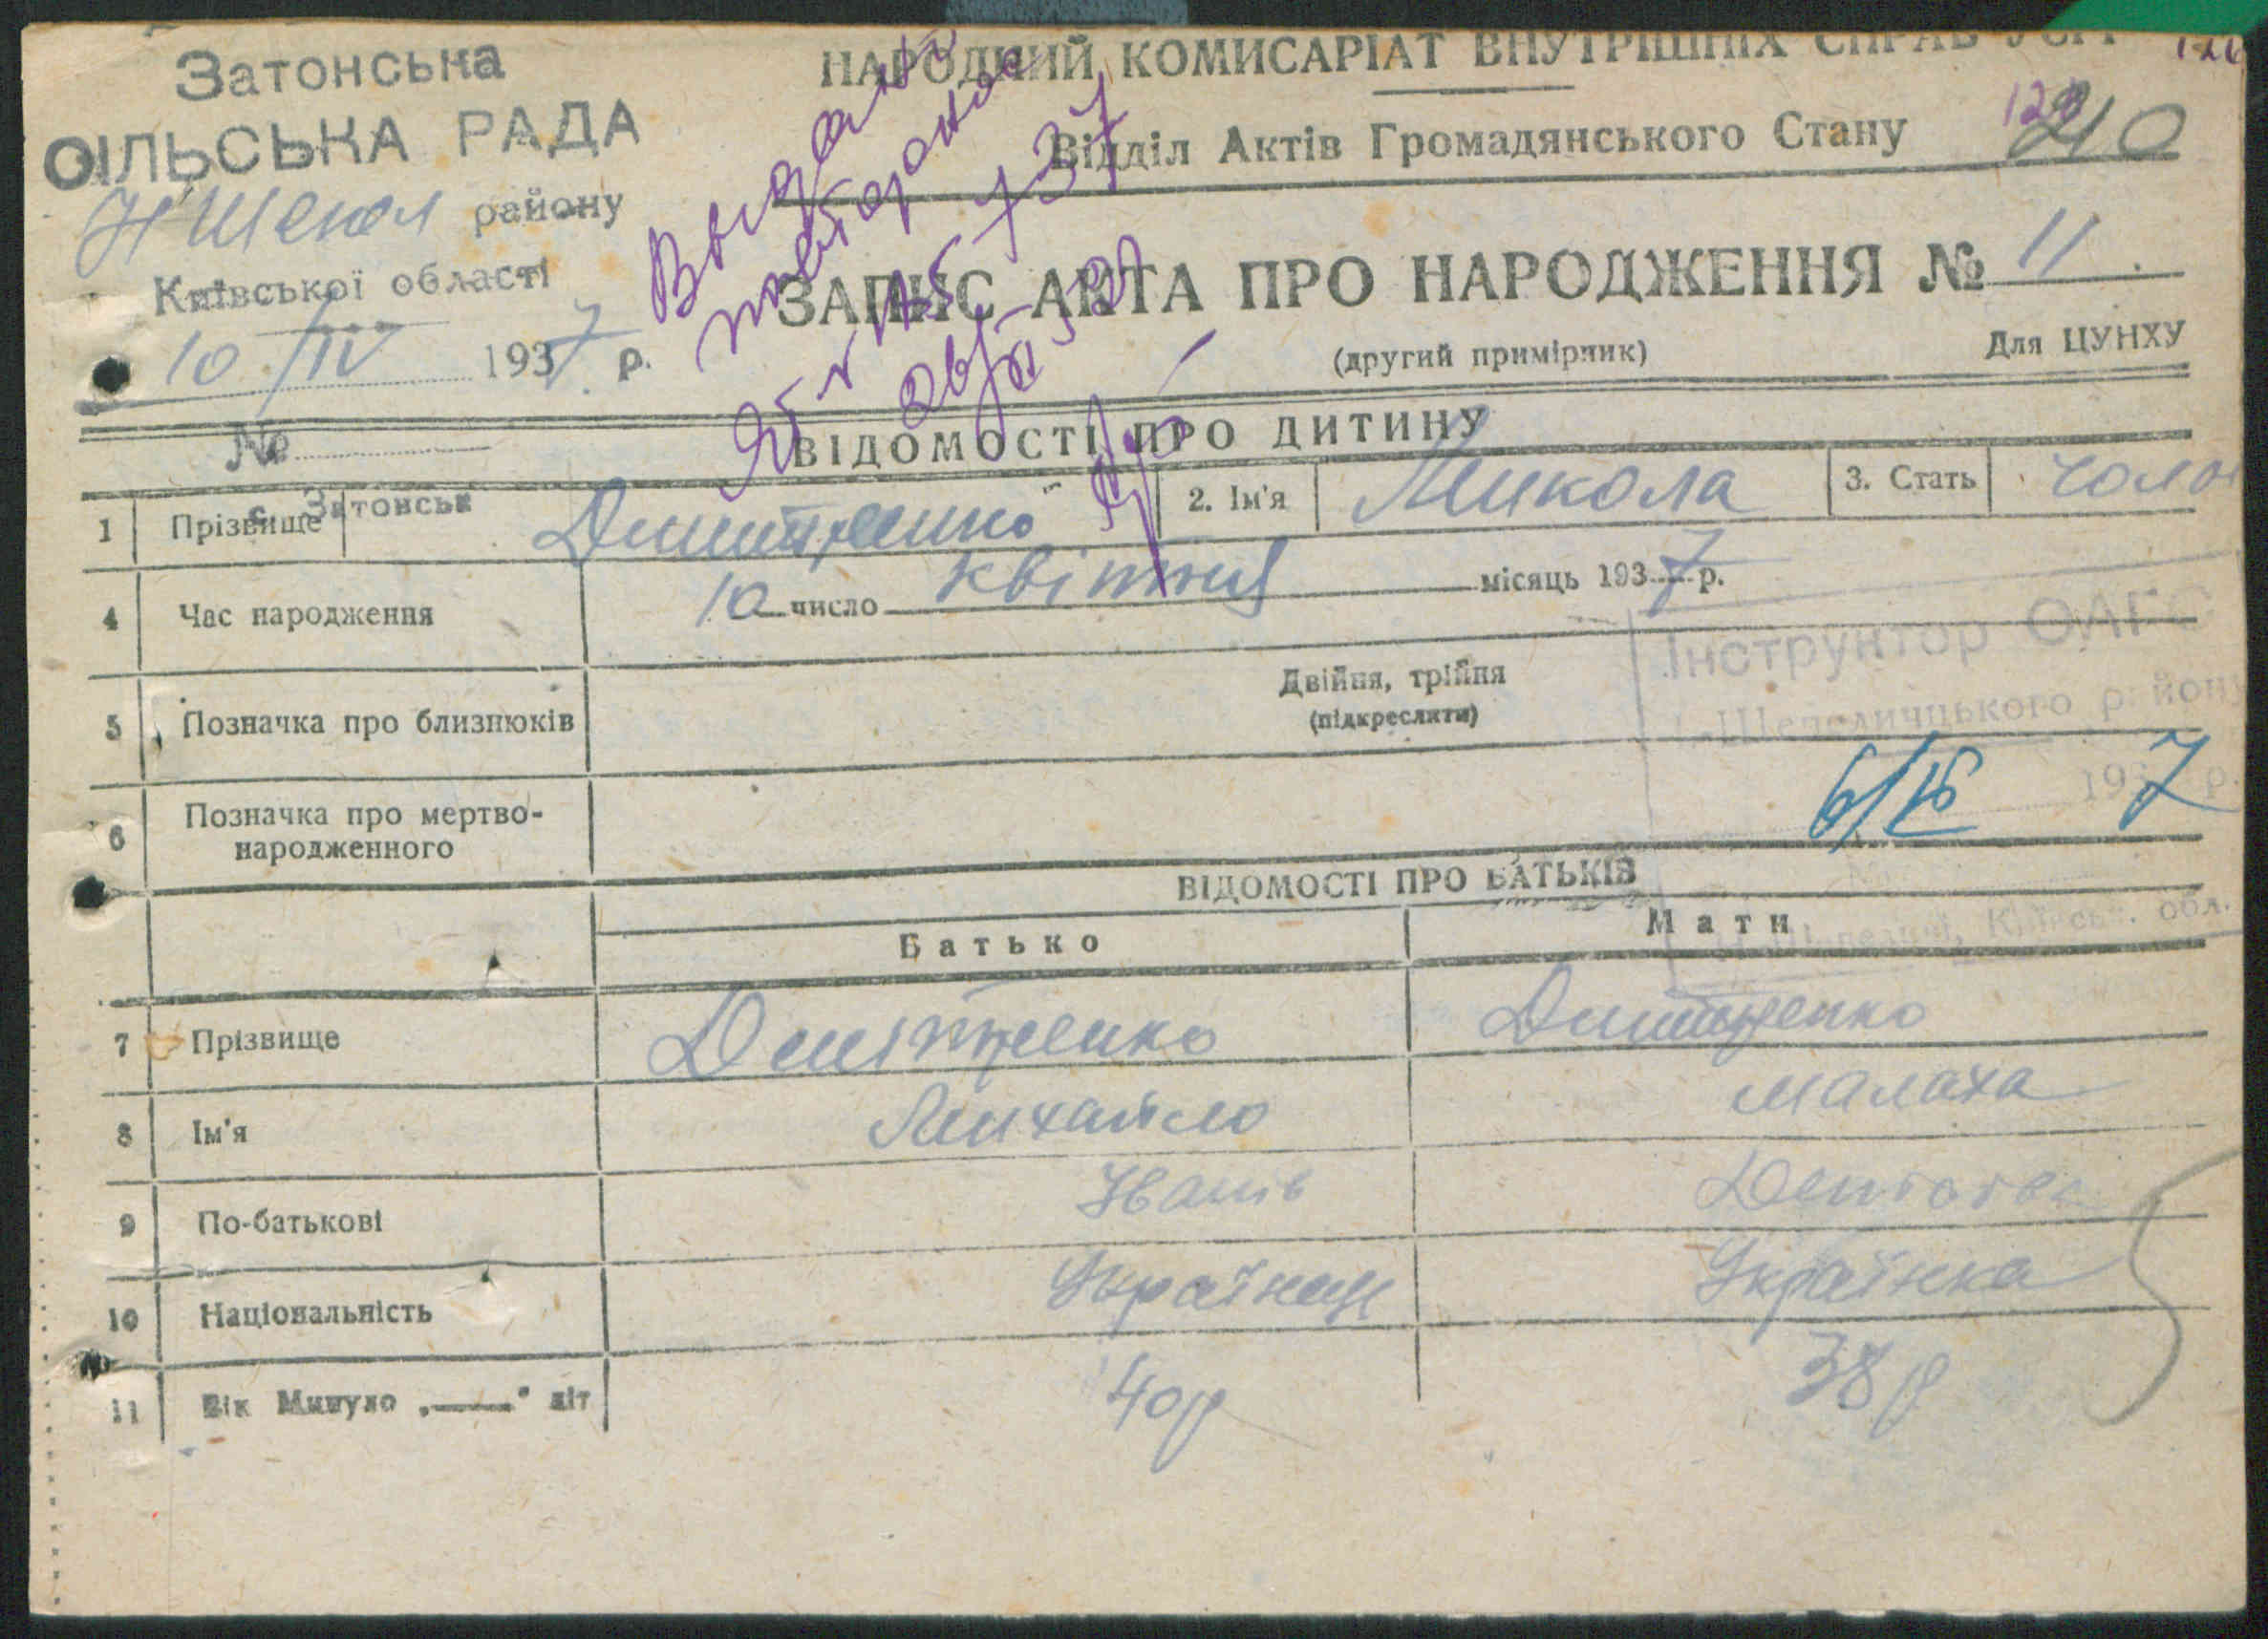 Затонська
СІЛЬСЬКА РАДА
Н Шепел району
Київської області
10/IV 1937 р.
№
с. Затонськ
НАРОДНИЙ КОМИСАРІАТ ВНУТРІШНІХ СПРАВ УСРР
Відділ Актів Громадянського Стану
210
ЗАПИС АКТА ПРО НАРОДЖЕННЯ № 11
(другий примірник)
Для ЦУНХУ
ВІДОМОСТІ ПРО ДИТИНУ
1 Прізвище Дмитренко 2. Ім'я Микола 3. Стать чолов
4 Час народження 10 число квітня місяць 1937 р.
5 Позначка про близнюків Двійня, трійня
(підкреслити)
Інструктор ОАГС
Н.-Шепеличцького району
6/IV 1937 р.
6 Позначка про мертво-
народженного
ВІДОМОСТІ ПРО БАТЬКІВ
Батько Мати
Н. Шепеличі, Київськ. обл.
7 Прізвище Дмітренко Дмитренко
8 Ім'я Михайло Малаха
9 По-батькові Іванів
10 Національність Українец Українка
11 Вік Минуло „——" літ 40р 38р